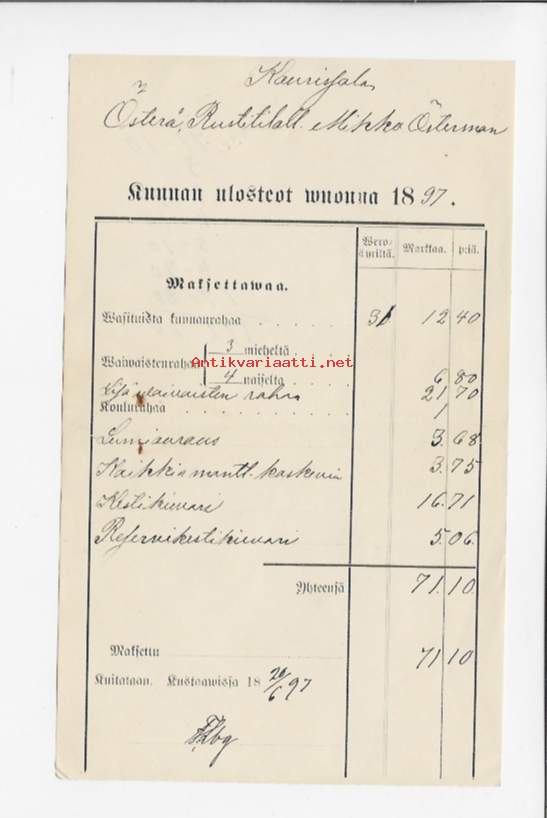 Kaurissalo
Österå, Rustitilall. Mikko Österman
Kunnan ulosteot wuonna 1897.
Wero-äyriltä. Markkaa. p:iä.
Maksettawaa.
Wasituista kunnanrahaa 31 12 40
3 mieheltä
Waiwaistenrahaa
4 naiselta 6 80
Lisä waivaisten rahaa 21 70
Koulurahaa 1
Lumiauraus 3. 68
Kaikkia mantt. koskevia 3. 75
Kestikievari 16. 71
Reservikestikievari 5. 06
Yhteensä 71. 10.
Maksettu 71 10
Kuitataan. Kustaawissa 18 20/6 97
Antikvariaatti.net